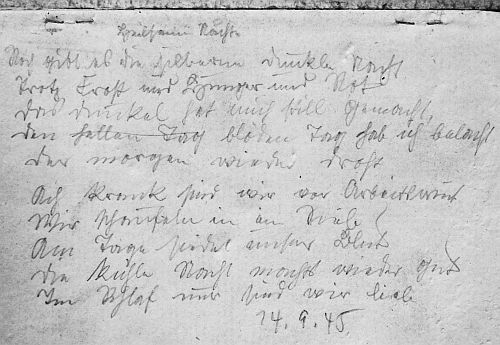 Heilsame Nächte
Noch gibt es die silberne dunkle Nacht
Trotz Frost und Hunger und Not
Das dunkel hat mich still gemacht,
den hellen Tag blöden Tag hab ich belacht
der morgen wieder droht
Ach krank sind wir vor Arbeitswut
Wir schaufeln in ein
Am Tage siedet unser Blut
die kühle Nacht machts wieder gut
Im Schlaf nur sind wir
24.9.45.